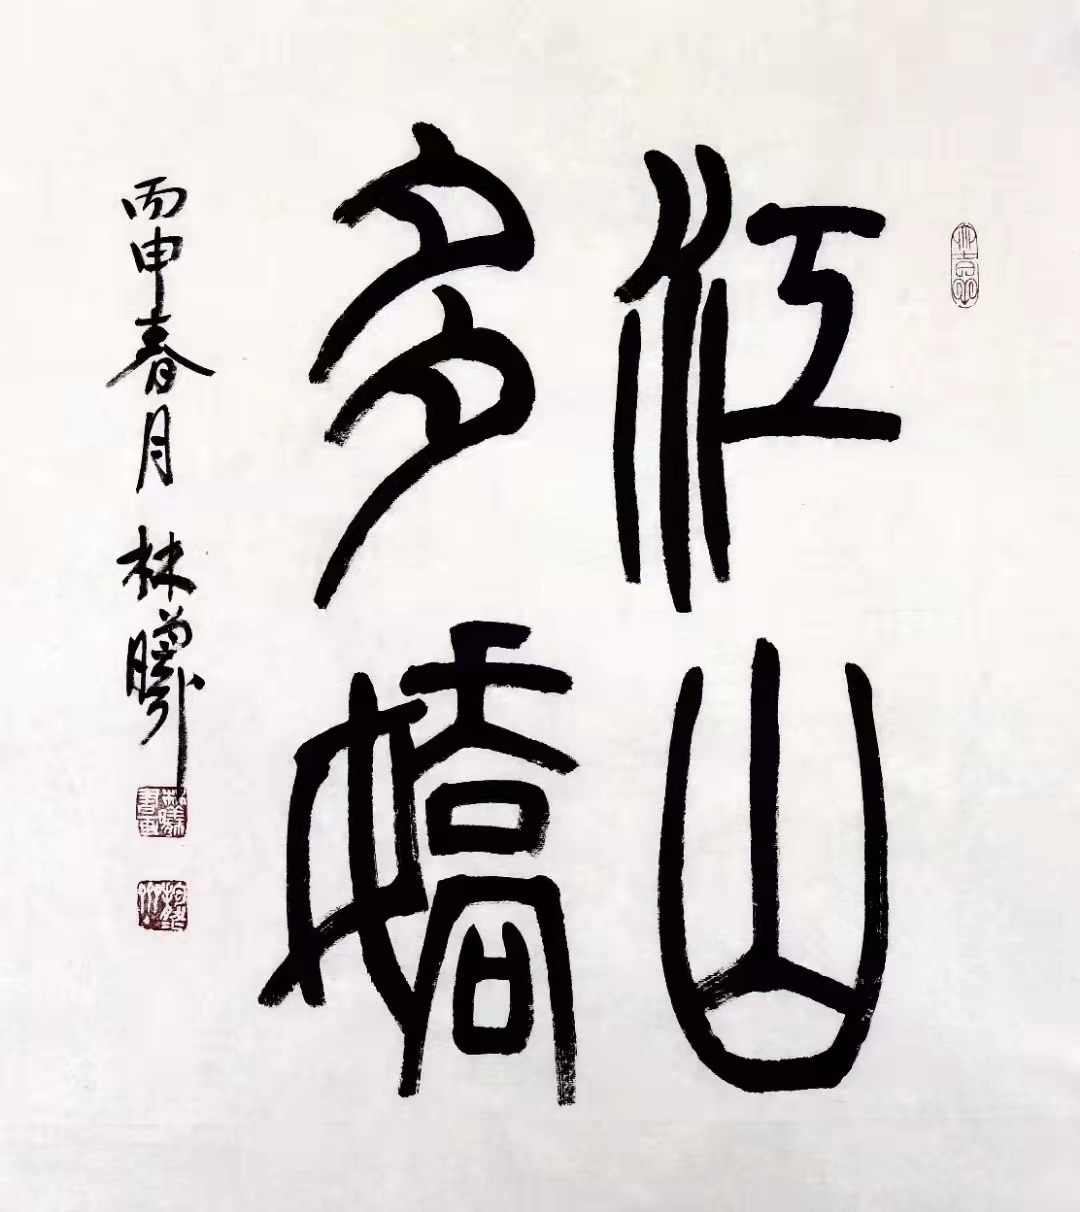 江山
多嬌
丙申春月 林曦